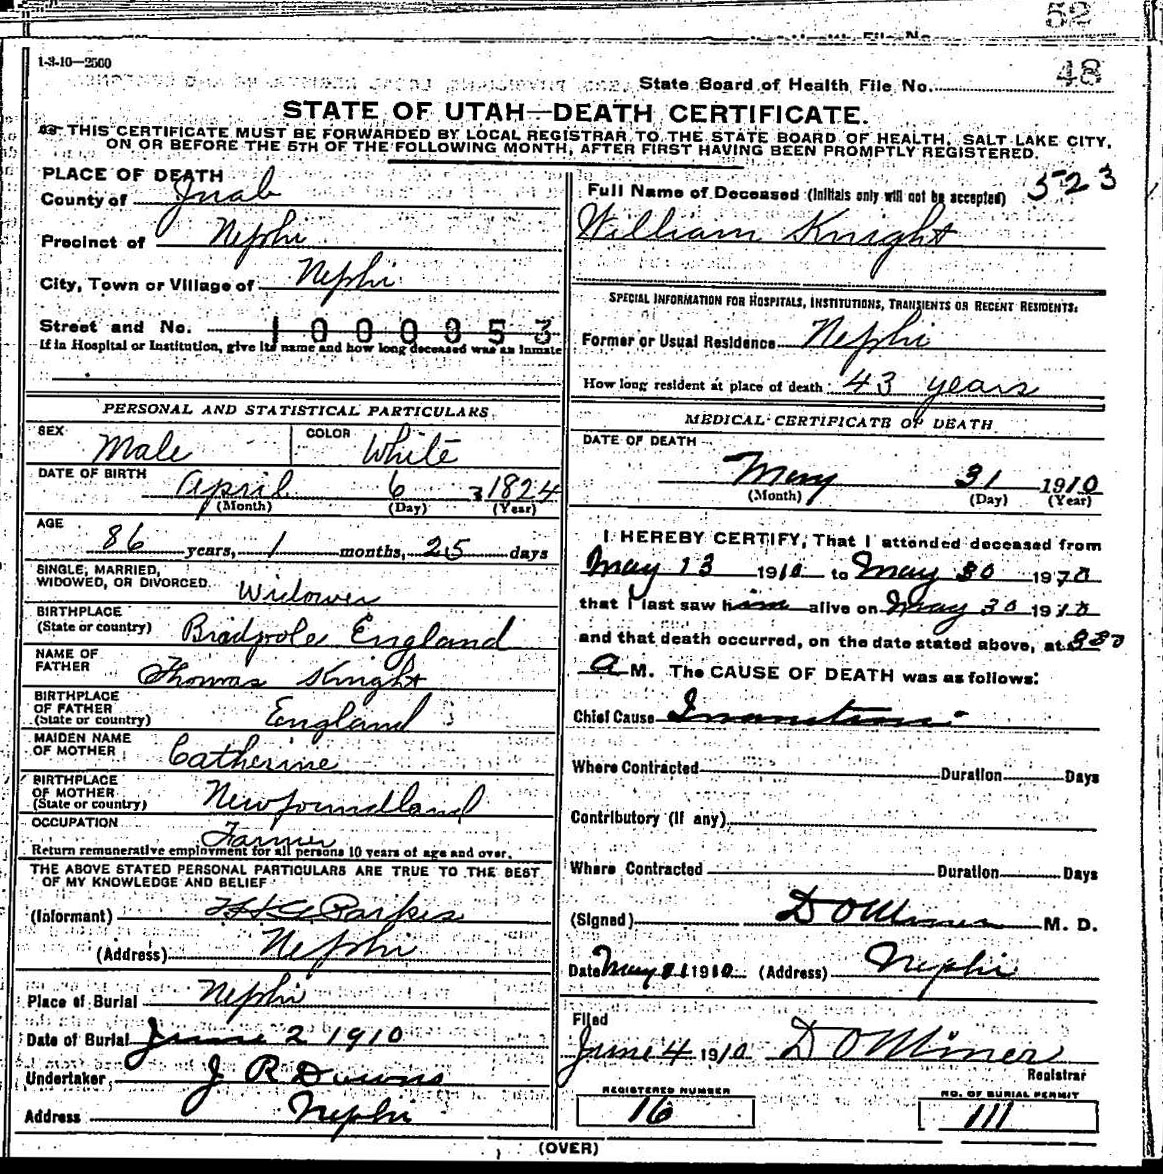 52
1-3-10—2500
State Board of Health File No. 48
STATE OF UTAH—DEATH CERTIFICATE.
THIS CERTIFICATE MUST BE FORWARDED BY LOCAL REGISTRAR TO THE STATE BOARD OF HEALTH, SALT LAKE CITY,
ON OR BEFORE THE 5TH OF THE FOLLOWING MONTH, AFTER FIRST HAVING BEEN PROMPTLY REGISTERED.
PLACE OF DEATH
County of Juab
Precinct of Nephi
City, Town or Village of Nephi
Street and No. 1000853
If in Hospital or Institution, give its name and how long deceased was an inmate
PERSONAL AND STATISTICAL PARTICULARS.
SEX Male COLOR White
DATE OF BIRTH April 6 1824
(Month) (Day) (Year)
AGE
86 years, 1 months, 25 days
SINGLE, MARRIED,
WIDOWED, OR DIVORCED. Widower
BIRTHPLACE
(State or country) Bradpole England
NAME OF
FATHER Thomas Knight
BIRTHPLACE
OF FATHER
(State or country) England
MAIDEN NAME
OF MOTHER Catherine
BIRTHPLACE
OF MOTHER
(State or country) Newfoundland
OCCUPATION Farmer
Return remunerative employment for all persons 10 years of age and over.
THE ABOVE STATED PERSONAL PARTICULARS ARE TRUE TO THE BEST
OF MY KNOWLEDGE AND BELIEF
(Informant) Parkes
(Address) Nephi
Place of Burial Nephi
Date of Burial June 2 1910
Undertaker J R Downs
Address Nephi
Full Name of Deceased (Initials only will not be accepted) 523
William Knight
SPECIAL INFORMATION FOR HOSPITALS, INSTITUTIONS, TRANSIENTS OR RECENT RESIDENTS:
Former or Usual Residence Nephi
How long resident at place of death 43 years
MEDICAL CERTIFICATE OF DEATH
DATE OF DEATH
May 31 1910
(Month) (Day) (Year)
I HEREBY CERTIFY, That I attended deceased from
May 13 1910 to May 30 1910
that I last saw him alive on May 30 1910
and that death occurred, on the date stated above, at 330
A M. The CAUSE OF DEATH was as follows:
Chief Cause Inanition
Where Contracted Duration Days
Contributory (if any)
Where Contracted Duration Days
(Signed) D O Miner M. D.
Date May 31 1910 (Address) Nephi
Filed
June 4 1910 D O Miner
Registrar
REGISTERED NUMBER
16
NO. OF BURIAL PERMIT
111
(OVER)